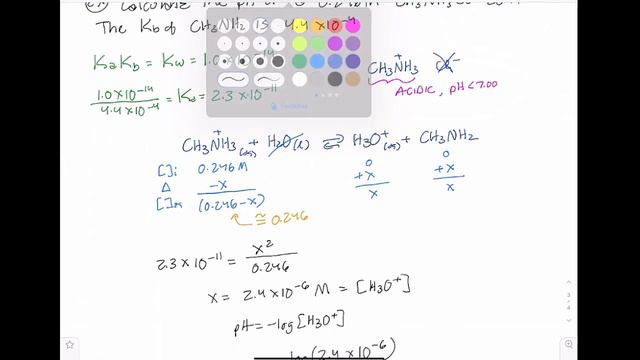 calculate the pH of a 0.246
The Kb of CH3NH2 is 4.4 × 10⁻⁴
KaKb = Kw = 1.0
1.0 × 10⁻¹⁴
4.4 × 10⁻⁴
= Ka = 2.3 × 10⁻¹¹
CH3N⁺H3 Cl⁻
ACIDIC, pH < 7.00
CH3N⁺H3 (aq) + H2O(l) ⇌ H3O⁺(aq) + CH3NH2
[ ]i 0.246 M 0 0
Δ -x +x +x
[ ]∞ (0.246-x) x x
≅ 0.246
2.3 × 10⁻¹¹ = x² / 0.246
x = 2.4 × 10⁻⁶ M = [H3O⁺]
pH = -log [H3O⁺]
(2.4 × 10⁻⁶)
3/4